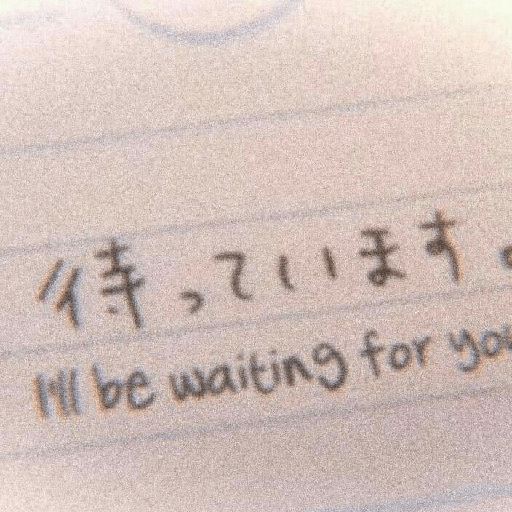 待っています。
I'll be waiting for you